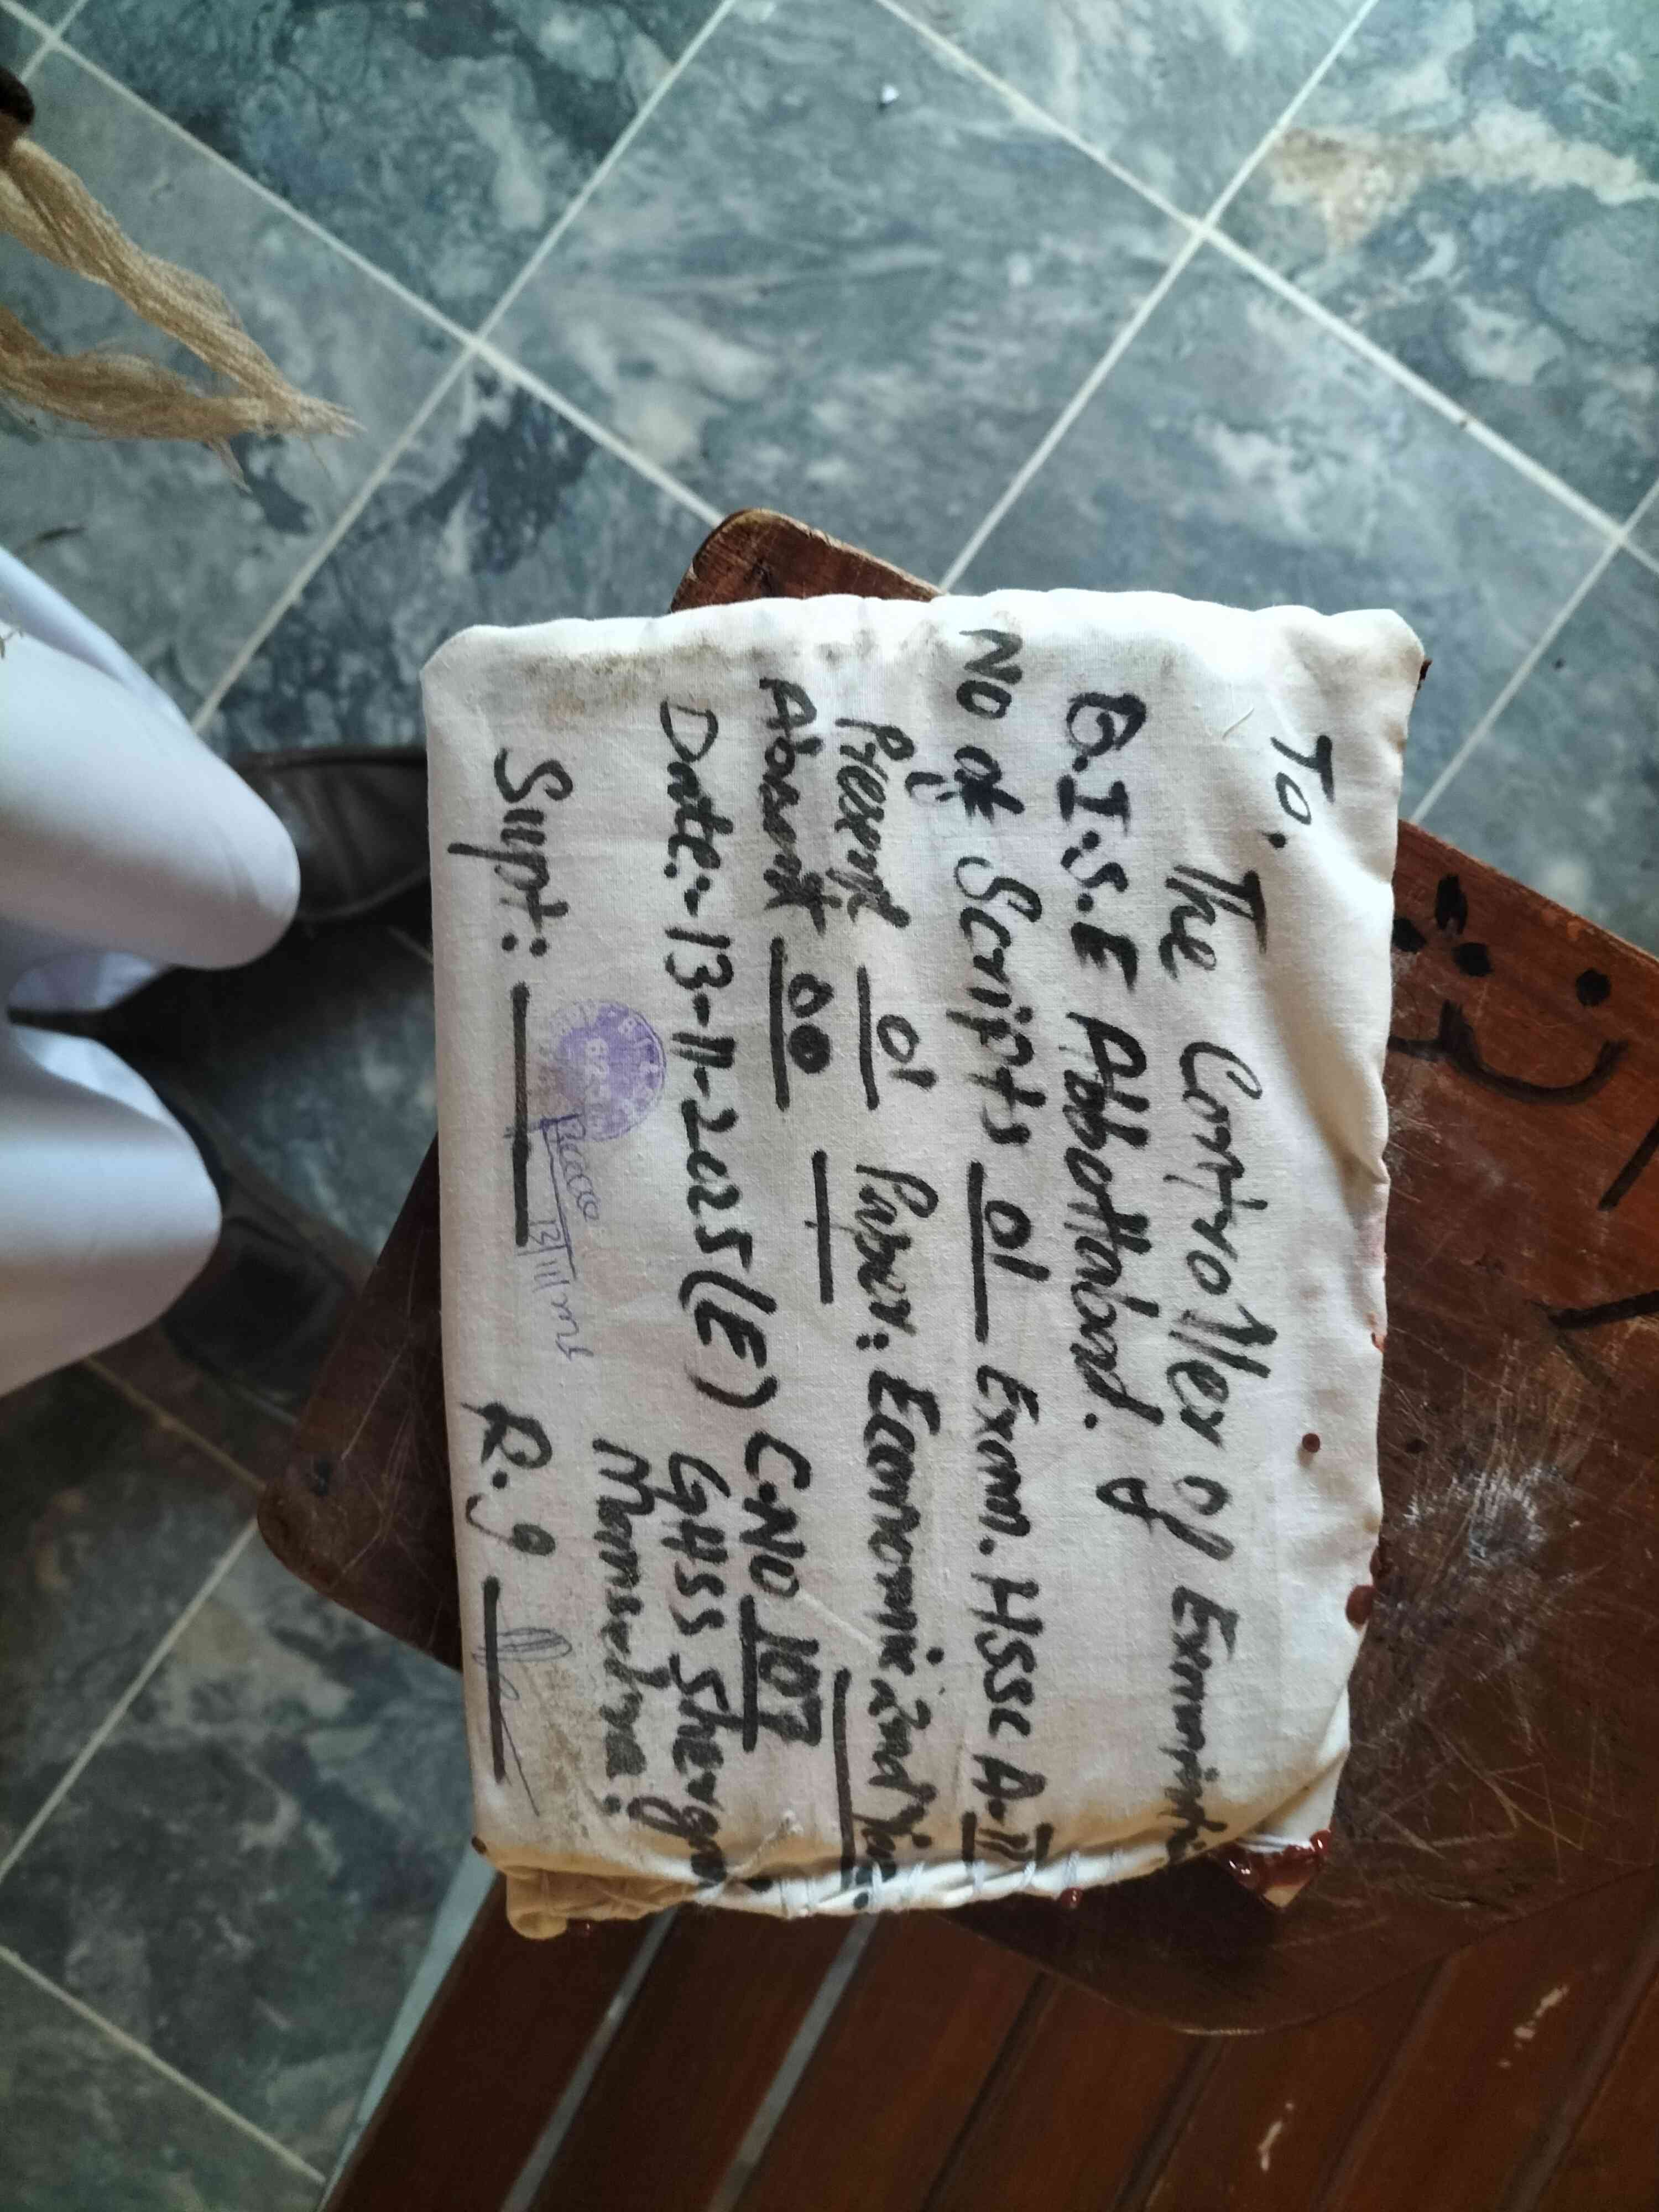 To.
The Controller of Examination
B.I.S.E Abbottabad.
No of Scripts 01 Exam. HSSC A-II
Present 01 Paper: Economic 2nd Year.
Absent 00
Date:- 13-11-2025 (E) C.NO 107
GHSS Shergarh
Mansehra.
Supt: 13/11/2025 R.I